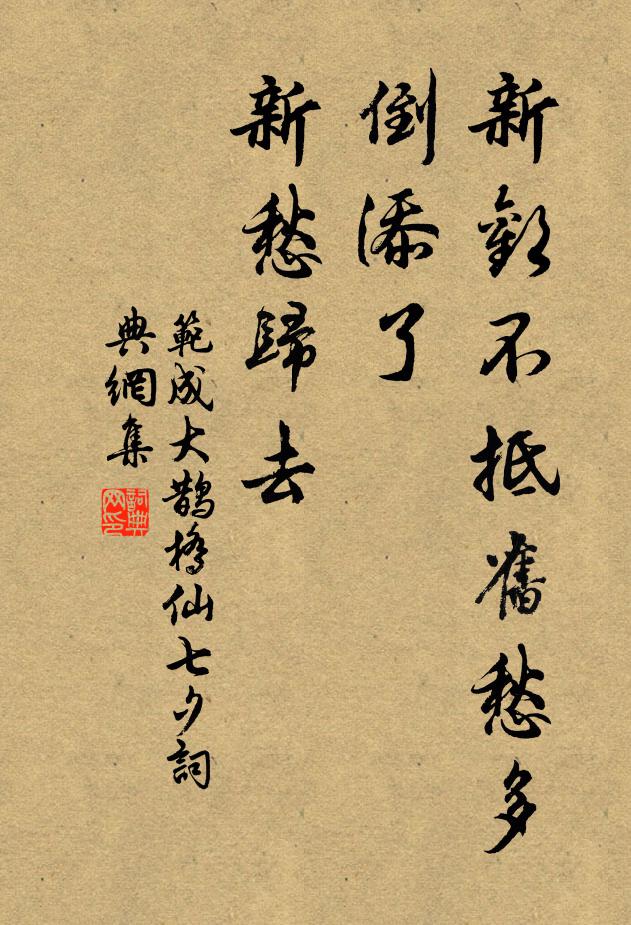 新歡不抵舊愁多
倒添了
新愁歸去
範成大鵲橋仙七夕詞
典網集
詞典網印